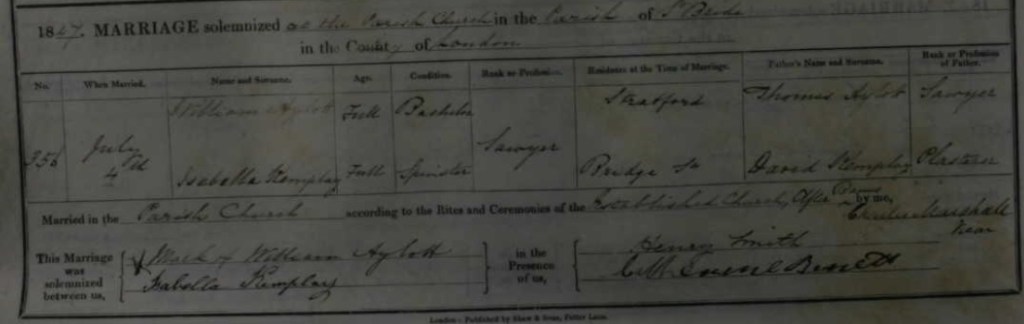 1847. MARRIAGE solemnized at the Parish Church in the Parish of St Bride
in the County of London
No. When Married. Name and Surname. Age. Condition. Rank or Profession. Residence at the Time of Marriage. Father's Name and Surname. Rank or Profession of Father.
William Aylott Full Bachelor Stratford Thomas Aylott Sawyer
356 July 4th Sawyer
Isabella Kemplay Full Spinster Bridge St David Kemplay Plasterer
Married in the Parish Church according to the Rites and Ceremonies of the Established Church, After Banns by me,
Charles Marshall
Vicar
This Marriage was solemnized between us, Mark X William Aylott Isabella Kemplay in the Presence of us, Henry Smith
London: Published by Shaw & Sons, Fetter Lane.